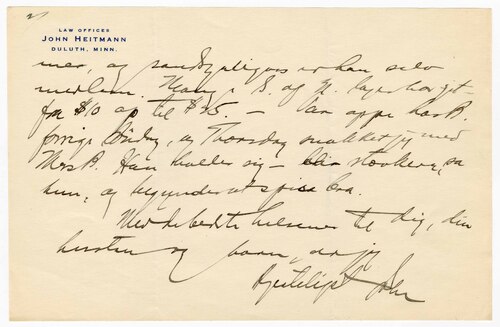 2
LAW OFFICES
JOHN HEITMANN
DULUTH, MINN.
mer, og sandsynligvis er han selv
medlem. Mange S. of N. lager har git
fra $10 op til $25. — Var oppe hos B.
forrige Søndag, og Thorsdag snakket jeg med
Mrs B. Han holder sig — sa
hun, og begynder at spise bra.
Med de bedste helsener til dig, din
hustru og barn, er jeg
Hjerteligst John